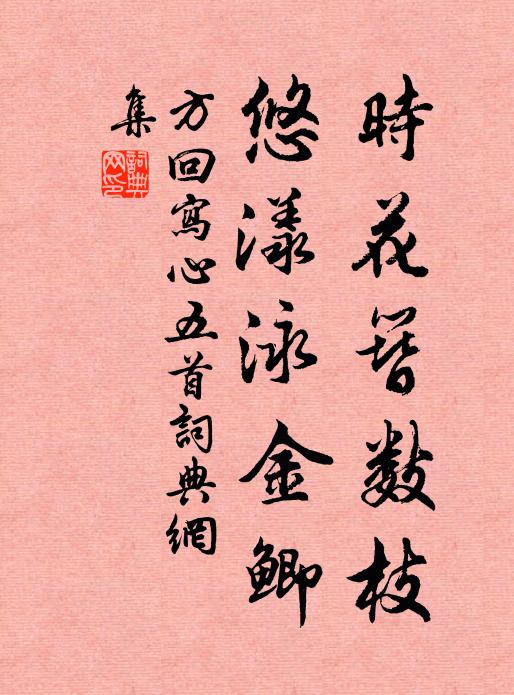 時花簪數枝
悠漾泳金鯽
方回寫心五首詞典網
集
詞典網印